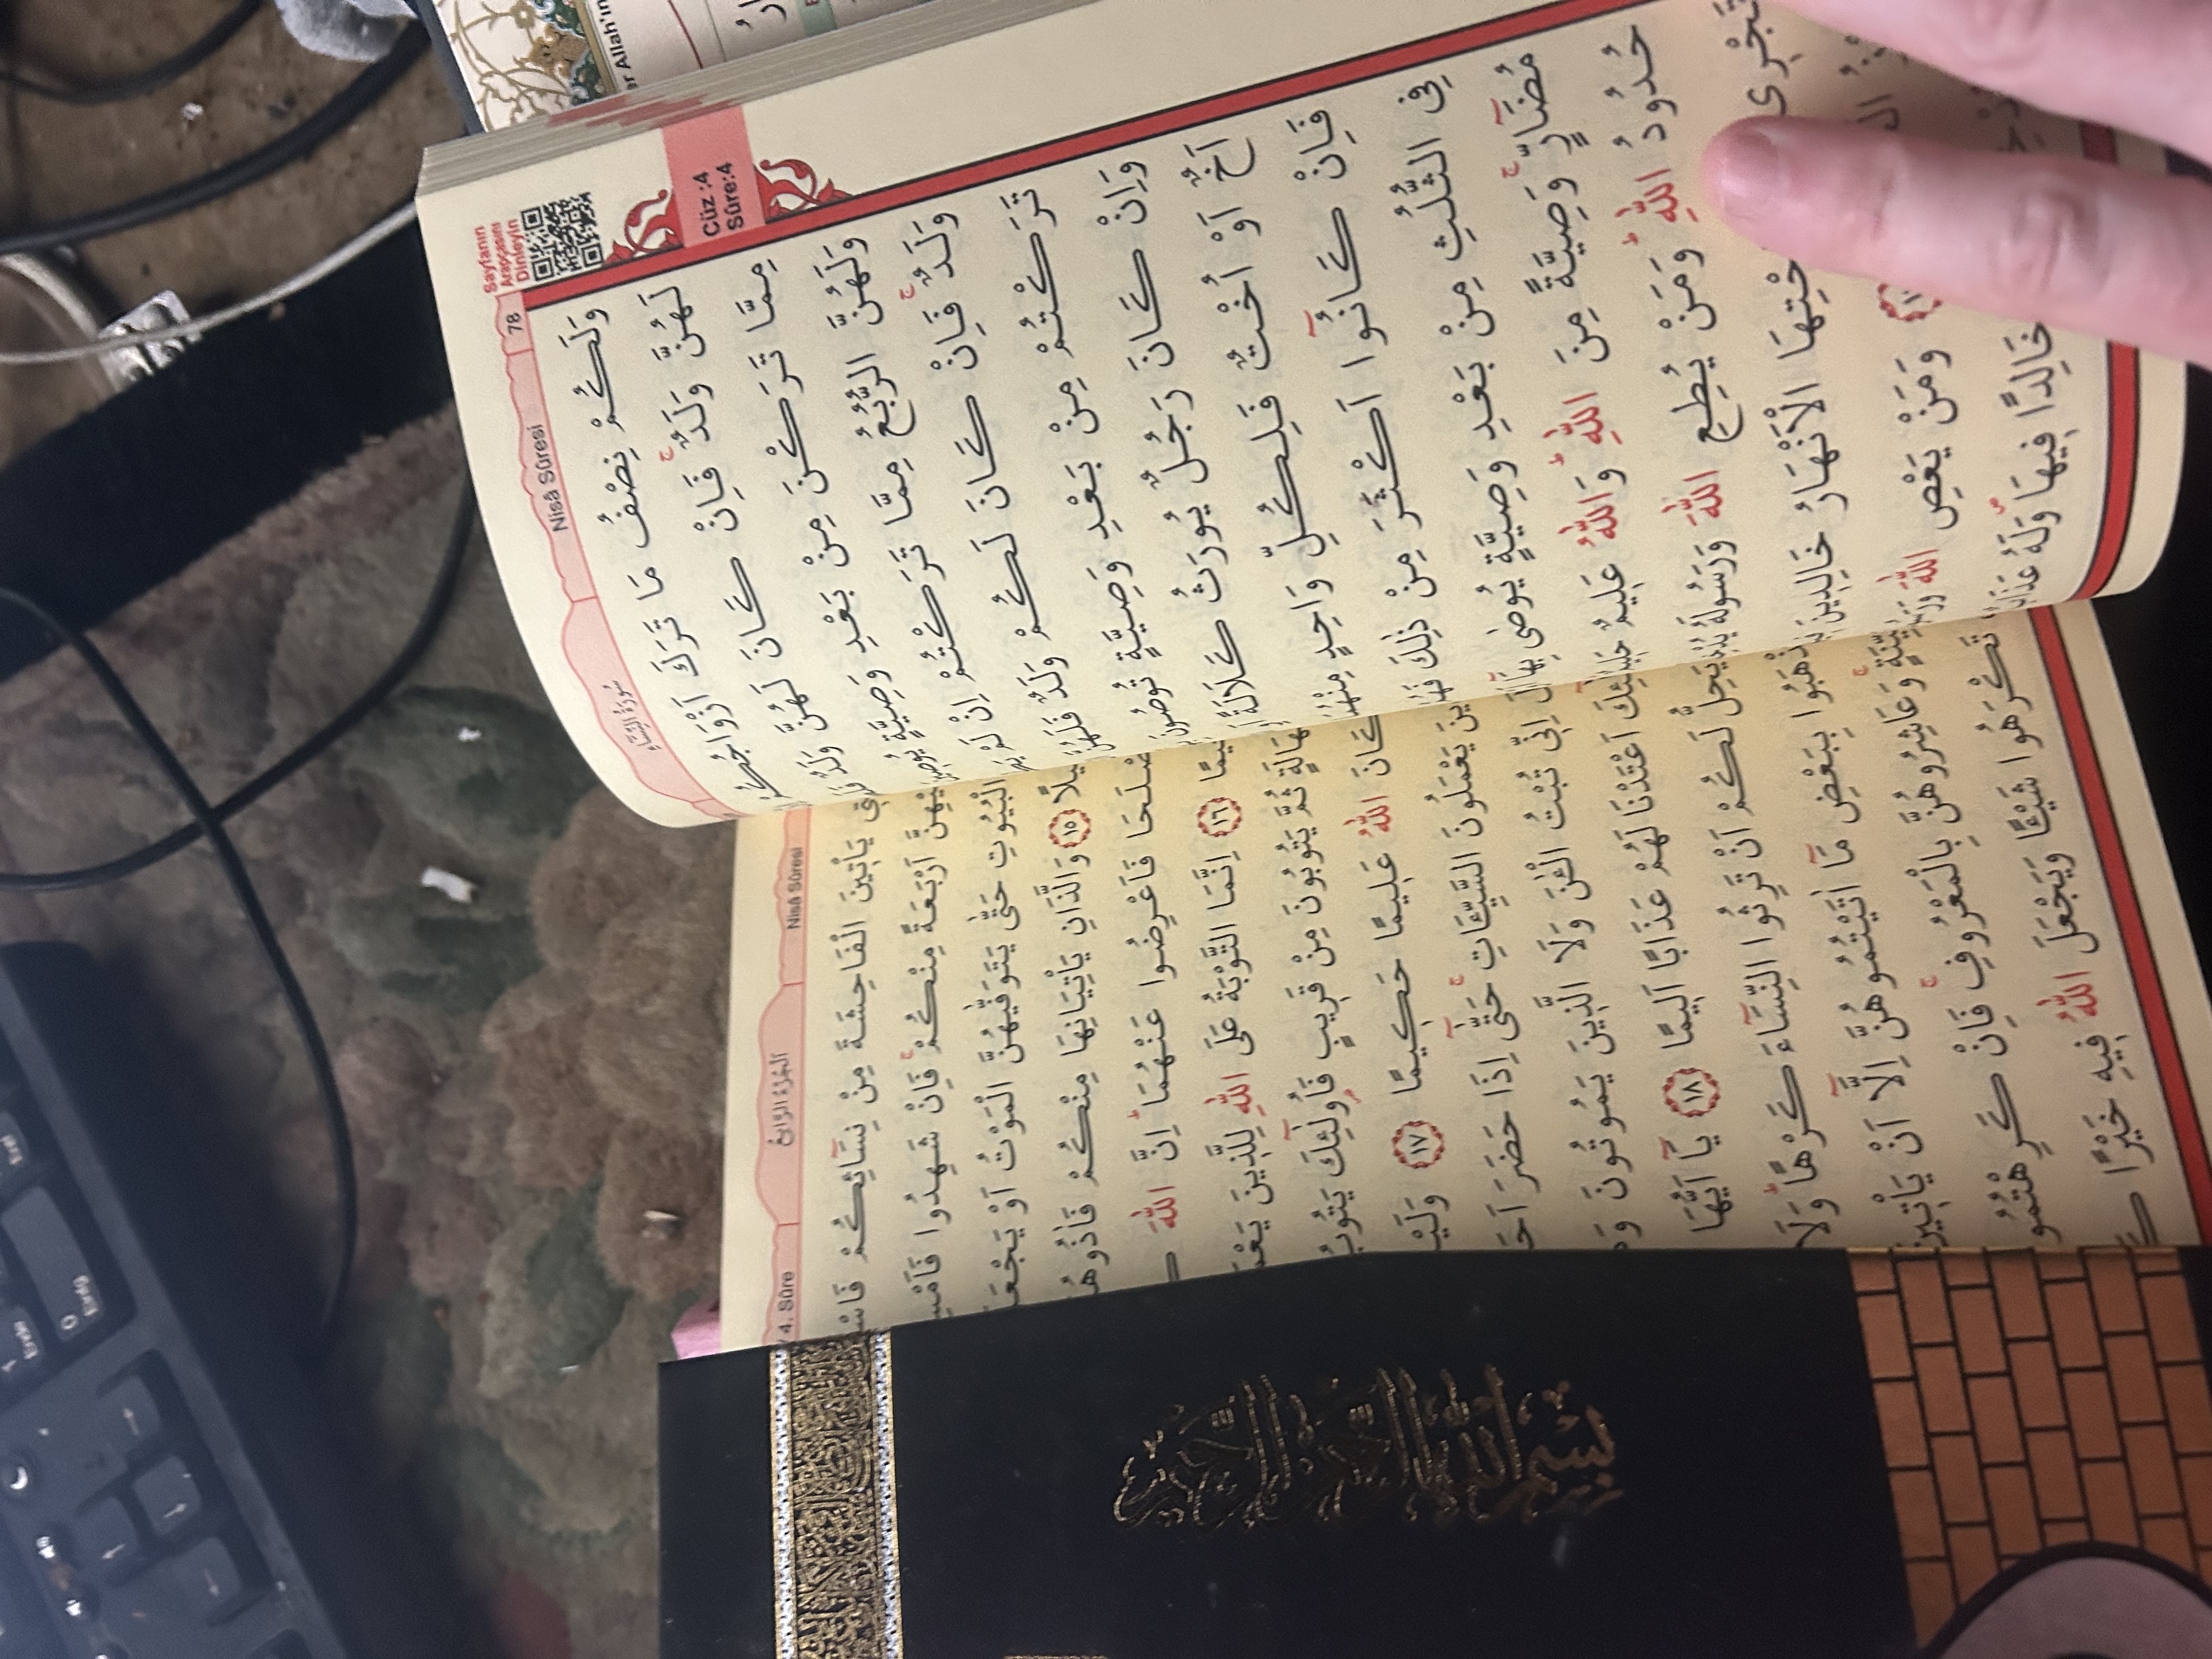 Ende
0
Einfg
Entf
Sayfanın
Arapçasını
Dinleyin
78
Nisâ Sûresi
سُورَةُ النِّسَاءِ
Cüz :4
Sûre:4
وَلَكُمْ نِصْفُ مَا تَرَكَ اَزْوَاجُكُمْ
لَهُنَّ وَلَدٌۚ فَاِنْ كَانَ لَهُنَّ وَلَدٌ
مِمَّا تَرَكْنَ مِنْ بَعْدِ وَصِيَّةٍ
وَلَهُنَّ الرُّبُعُ مِمَّا تَرَكْتُمْ اِنْ لَمْ
وَلَدٌۚ فَاِنْ كَانَ لَكُمْ وَلَدٌ فَلَهُنَّ
تَرَكْتُمْ مِنْ بَعْدِ وَصِيَّةٍ تُوصُونَ
وَاِنْ كَانَ رَجُلٌ يُورَثُ كَلَالَةً
اَخٌ اَوْ اُخْتٌ فَلِكُلِّ وَاحِدٍ
فَاِنْ كَانُٓوا اَكْثَرَ مِنْ ذٰلِكَ
فِى الثُّلُثِ مِنْ بَعْدِ وَصِيَّةٍ يُوصٰى بِهَٓا
مُضَٓارٍّۚ وَصِيَّةً مِنَ اللّٰهِؕ وَاللّٰهُ عَلٖيمٌ
حُدُودُ اللّٰهِؕ وَمَنْ يُطِعِ اللّٰهَ وَرَسُولَهُ
تَجْرٖى الْاَنْهَارُ خَالِدٖينَ
وَمَنْ يَعْصِ اللّٰهَ
خَالِدًا فٖيهَاࣕ وَلَهُ عَذَابٌ
4. Sûre
اَلْجُزْءُ الرَّابِعُ
Nisâ Sûresi
يَاْتٖينَ الْفَاحِشَةَ مِنْ نِسَٓائِكُمْ
اَرْبَعَةً مِنْكُمْۚ فَاِنْ شَهِدُوا
الْبُيُوتِ حَتّٰى يَتَوَفّٰيهُنَّ الْمَوْتُ اَوْ
١٥ وَالَّذَانِ يَاْتِيَانِهَا مِنْكُمْ
فَاَعْرِضُوا عَنْهُمَاؕ اِنَّ اللّٰهَ
١٦ اِنَّمَا التَّوْبَةُ عَلَى اللّٰهِ لِلَّذٖينَ
ثُمَّ يَتُوبُونَ مِنْ قَرٖيبٍ فَاُولٰٓئِكَ
كَانَ اللّٰهُ عَلٖيمًا حَكٖيمًا ١٧
يَعْمَلُونَ السَّيِّـَٔاتِۚ حَتّٰٓى اِذَا حَضَرَ
اِنّٖى تُبْتُ الْـٰٔنَ وَلَا الَّذٖينَ يَمُوتُونَ
اَعْتَدْنَا لَهُمْ عَذَابًا اَلٖيمًا ١٨ يَٓا اَيُّهَا
يَحِلُّ لَكُمْ اَنْ تَرِثُوا النِّسَٓاءَ كَرْهًاؕ وَلَا
بِبَعْضِ مَٓا اٰتَيْتُمُوهُنَّ اِلَّٓا اَنْ
وَعَاشِرُوهُنَّ بِالْمَعْرُوفِۚ فَاِنْ
تَكْرَهُوا شَيْـًٔا وَيَجْعَلَ اللّٰهُ فٖيهِ خَيْرًا